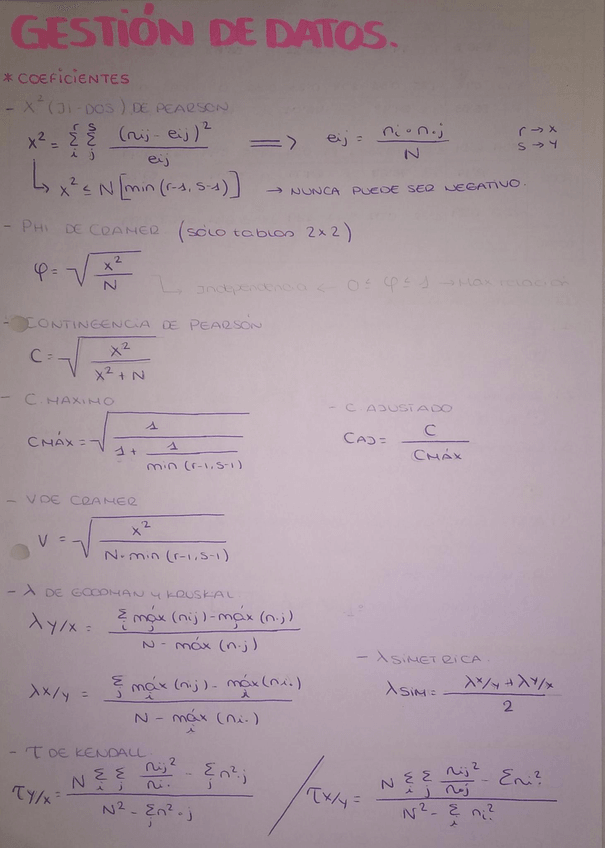 GESTIÓN DE DATOS.
* COEFICIENTES
- X² (JI-DOS) DE PEARSON
X² = Σ_i^r Σ_j^s (nij - eij)² / eij ⟹ eij = ni· n·j / N r → X
s → Y
↳ X² ≤ N [min (r-1, s-1)] → NUNCA PUEDE SER NEGATIVO.
- PHI DE CRAMER (sólo tablas 2x2)
φ = √(X² / N)
↳ Independencia ← 0 ≤ φ ≤ 1 → Max relación
- CONTINGENCIA DE PEARSON
C = √(X² / (X² + N))
- C. MAXIMO - C. AJUSTADO
CMÁX = √(1 / (1 + 1 / min (r-1, s-1))) CAJ = C / CMÁX
- V DE CRAMER
V = √(X² / (N · min (r-1, s-1)))
- λ DE GOODMAN Y KRUSKAL
λ Y/X = (Σ_i máx_j (nij) - máx_j (n·j)) / (N - máx (n·j))
- λ SIMETRICA.
λ X/Y = (Σ_j máx_i (nij) - máx_i (ni·)) / (N - máx_i (ni·)) λ SIM = (λX/Y + λY/X) / 2
- T DE KENDALL
T Y/X = (N Σ_i Σ_j nij² / ni· - Σ_j n²·j) / (N² - Σ_j n²·j) / T X/Y = (N Σ_i Σ_j nij² / n·j - Σ ni·²) / (N² - Σ_i ni·²)